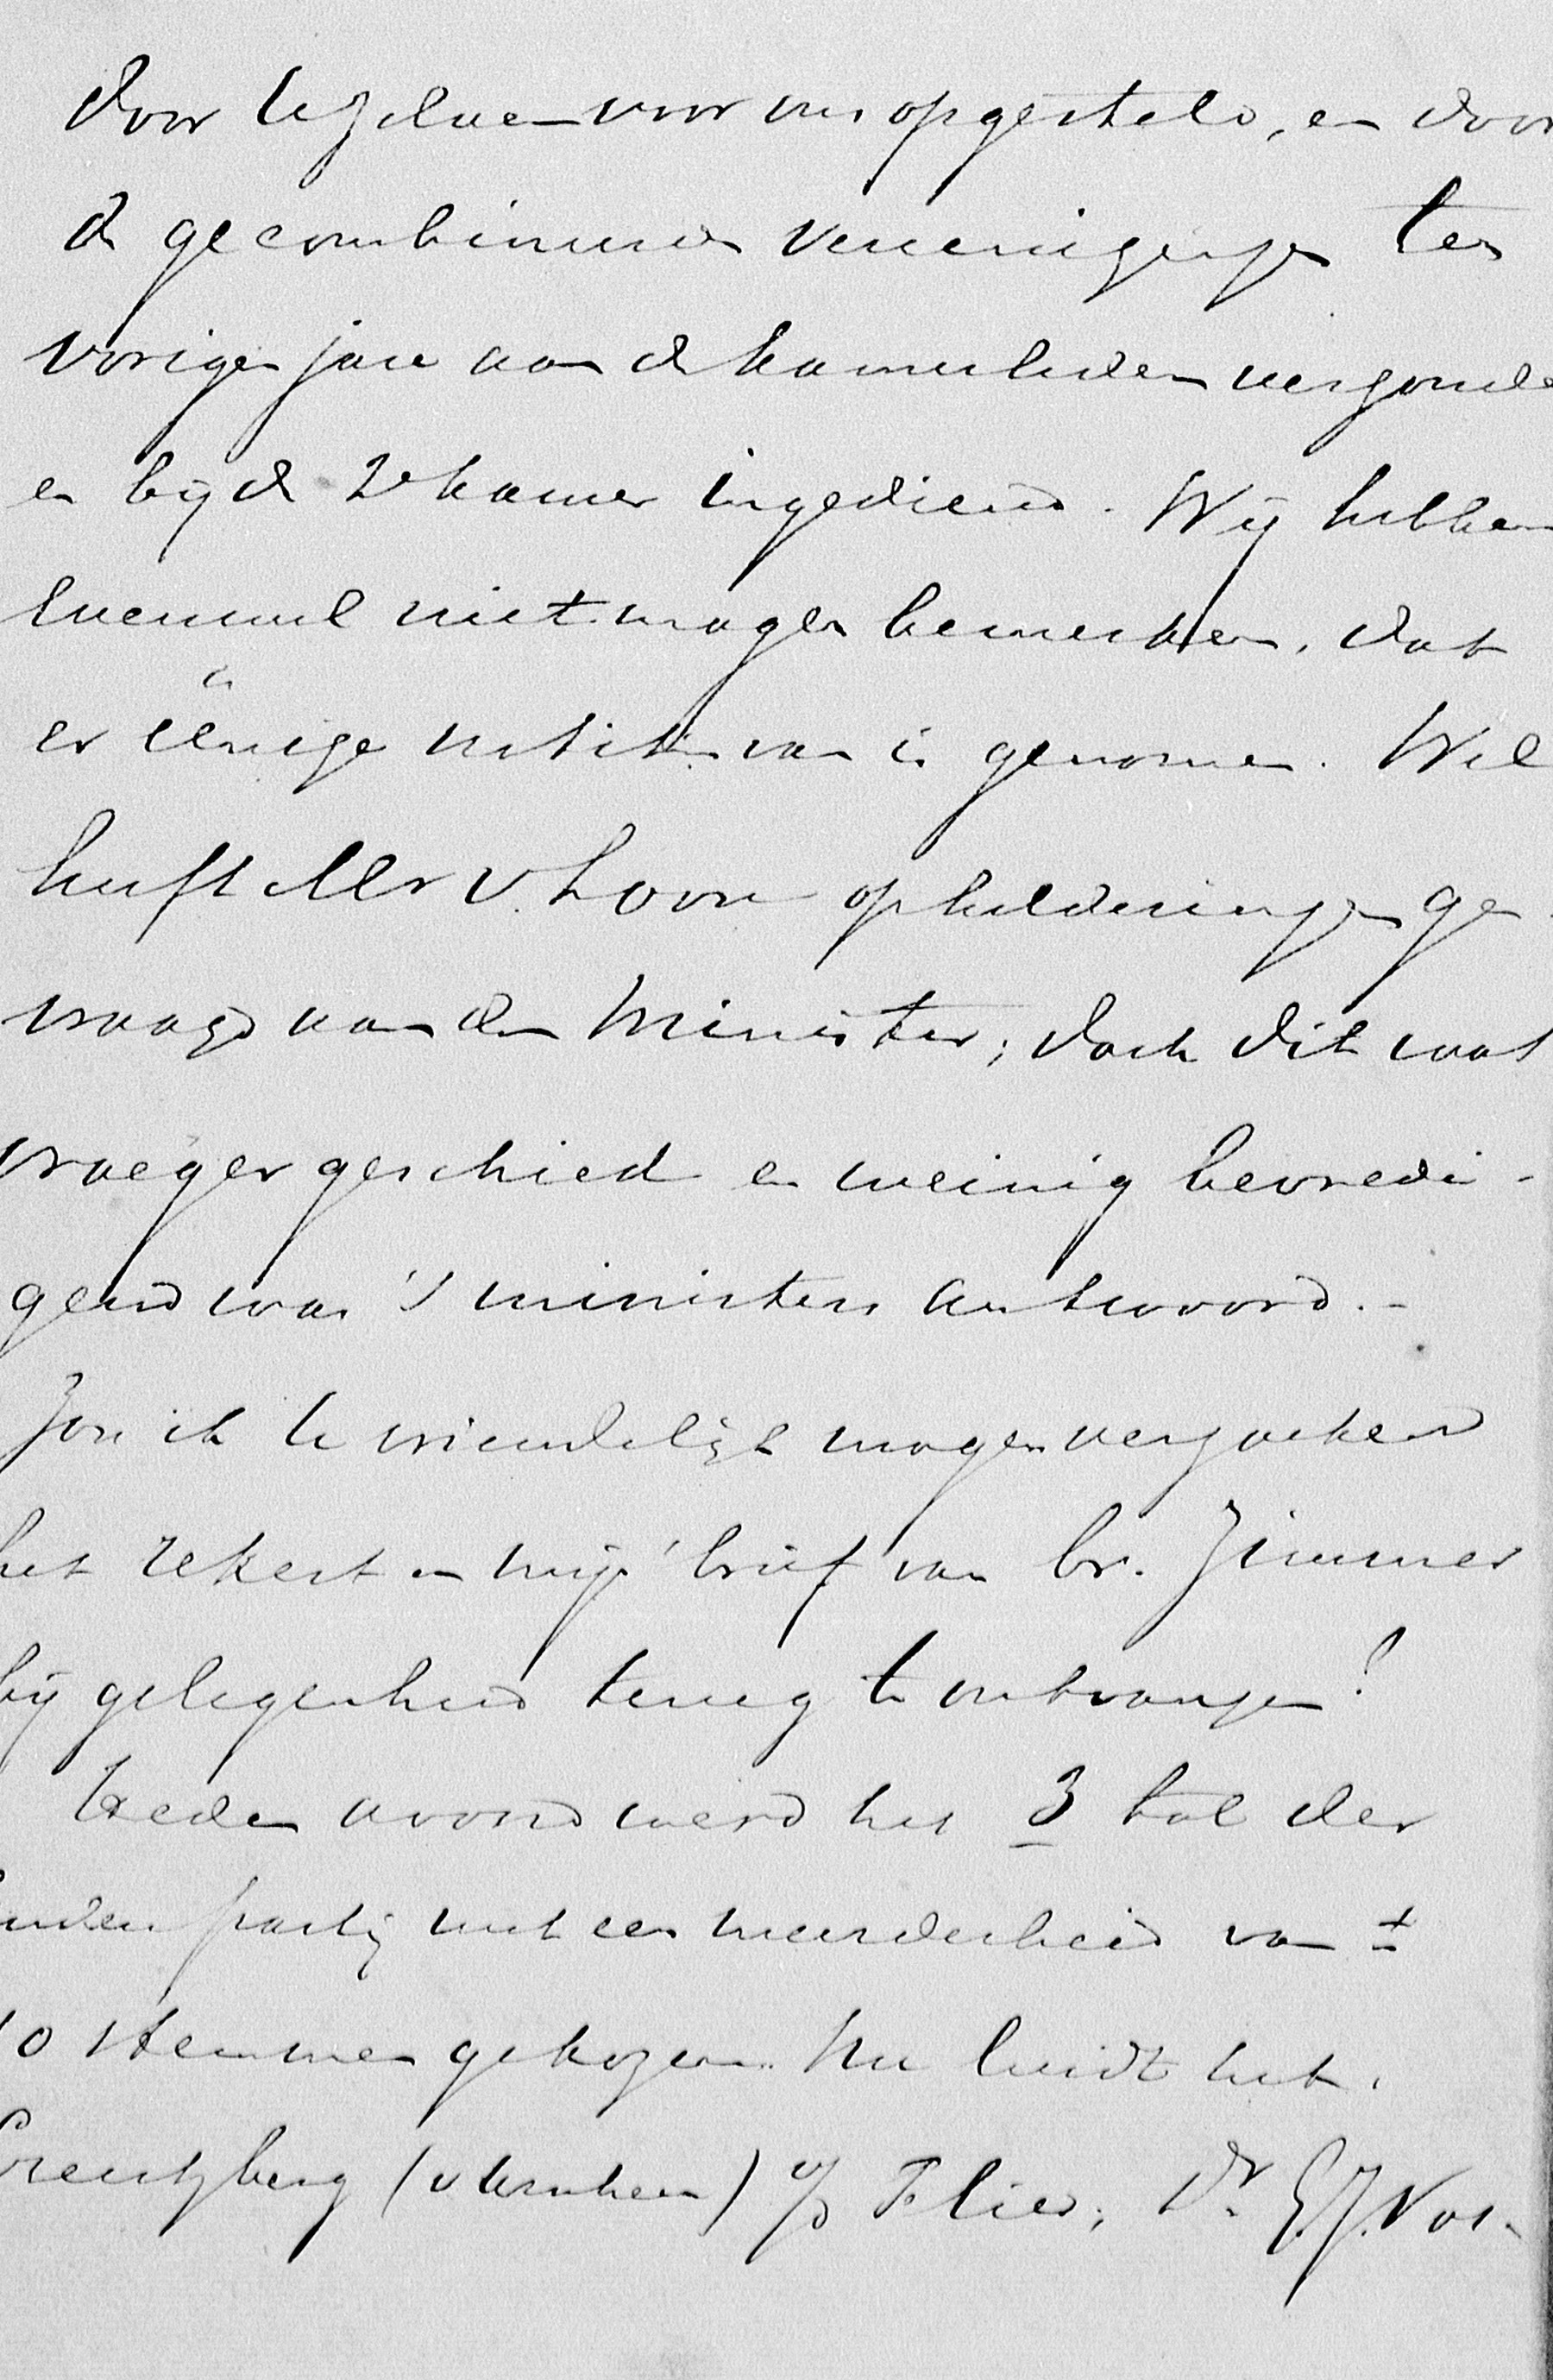 door dezelve voor ons opgesteld, en door
de gecombineerde vereenigingen ten
vorigen jare aan de kamerleden verzonde
en bij de 2e kamer ingediend. Wij hebben
evenwel niet mogen bemerken, dat
er eenige notitie van is genomen. Wel
heeft Mr v. Loon ophelderingen ge-
vraagd aan den Minister; doch dit was
vroeger geschied en weinig bevredi-
gend was 's ministers antwoord. -
Zou ik U vriendelijk mogen verzoeken
het rekest en mijn brief van br. Zimmer
bij gelegenheid terug te ontvangen?
Heden avond werd het 3 tal der
partij met een meerderheid van ±
stemmen gekozen. Nu luidt het.
Creutzberg (v Arnhem) v/d Flier, Dr. G.J. Vos.